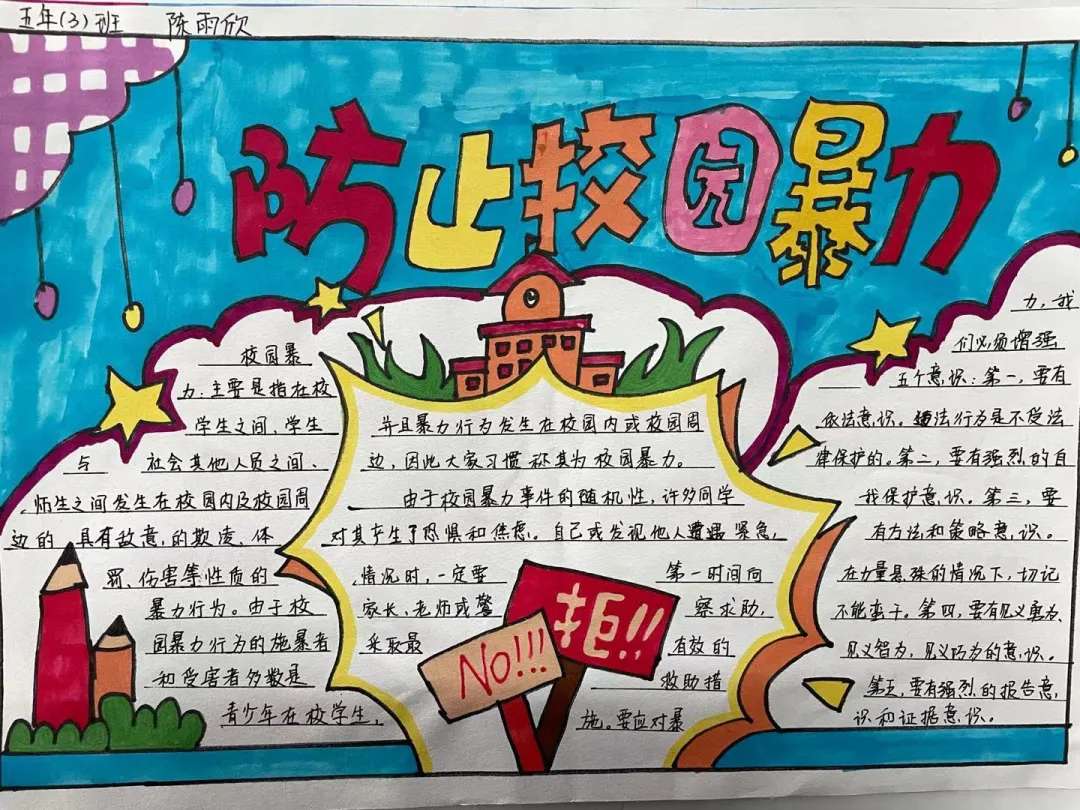 五年(3)班 陈雨欣
防止校园暴力
校园暴
力:主要是指在校
学生之间、学生
与 社会其他人员之间、
师生之间发生在校园内及校园周
边的 具有敌意的欺凌、体
罚、伤害等性质的
暴力行为。由于校
园暴力行为的施暴者
和受害者多数是
青少年在校学生,
并且暴力行为发生在校园内或校园周
边,因此大家习惯称其为校园暴力。
由于校园暴力事件的随机性,许多同学
对其产生了恐惧和焦虑。自己或发现他人遭遇紧急
情况时,一定要 第一时间向
家长、老师或警 察求助,
采取最 有效的
救助措
施。要应对暴
NO!!!
拒!!
力,我
们必须增强
五个意识:第一,要有
依法意识。违法行为是不受法
律保护的。第二,要有强烈的自
我保护意识。第三,要
有方法和策略意识。
在力量悬殊的情况下,切记
不能蛮干。第四,要有见义勇为、
见义智为,见义巧为的意识。
第五,要有强烈的报告意
识和证据意识。